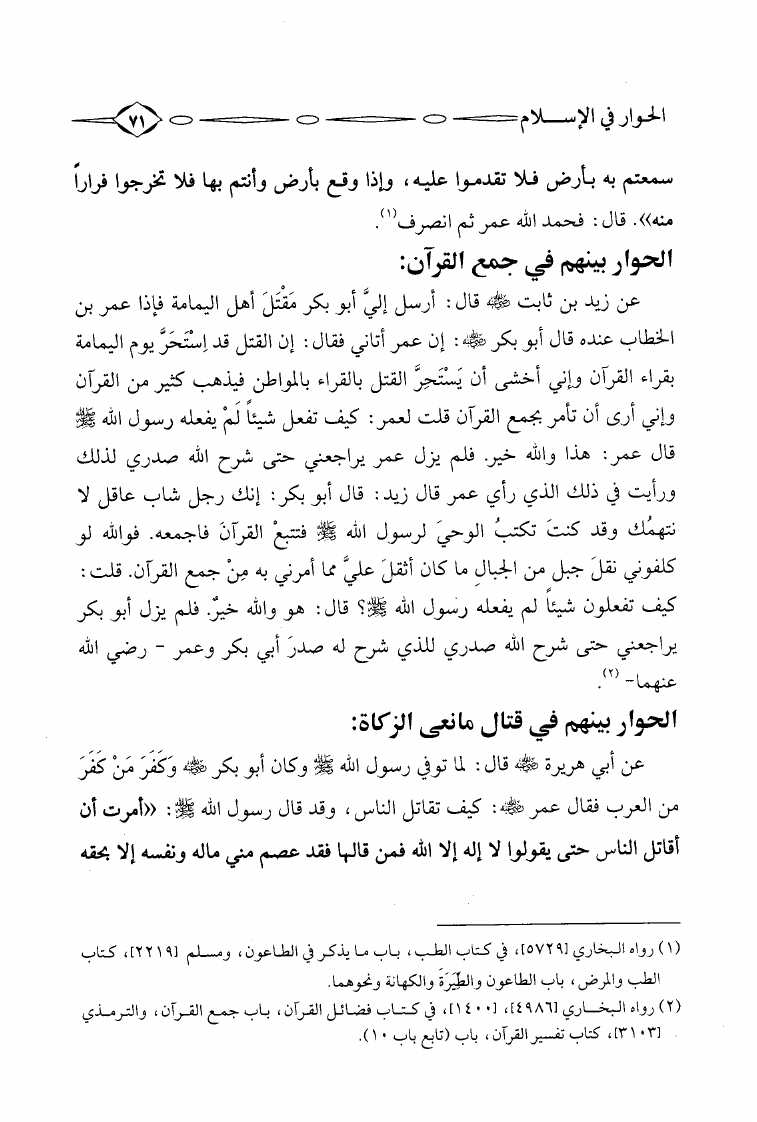 الحوار في الإســـلام
٧١
سمعتم به بأرض فلا تقدموا عليه، وإذا وقع بأرض وأنتم بها فلا تخرجوا فراراً
منه». قال: فحمد الله عمر ثم انصرف(١).
الحوار بينهم في جمع القرآن:
عن زيد بن ثابت ﷺ قال: أرسل إليَّ أبو بكر مَقْتَلَ أهل اليمامة فإذا عمر بن
الخطاب عنده قال أبو بكر ﷺ: إن عمر أتاني فقال: إن القتل قد اِسْتَحَرَّ يوم اليمامة
بقراء القرآن وإني أخشى أن يَسْتَحِرَّ القتل بالقراء بالمواطن فيذهب كثير من القرآن
وإني أرى أن تأمر بجمع القرآن قلت لعمر: كيف تفعل شيئاً لَمْ يفعله رسول الله ﷺ
قال عمر: هذا والله خير. فلم يزل عمر يراجعني حتى شرح الله صدري لذلك
ورأيت في ذلك الذي رأي عمر قال زيد: قال أبو بكر: إنك رجل شاب عاقل لا
نتهمُك وقد كنتَ تكتبُ الوحيَ لرسول الله ﷺ فتتبعْ القرآنَ فاجمعه. فوالله لو
كلفوني نقلَ جبل من الجبالِ ما كان أثقلَ عليَّ مما أمرني به مِنْ جمع القرآن. قلت:
كيف تفعلون شيئاً لم يفعله رسول الله ﷺ؟ قال: هو والله خيرٌ. فلم يزل أبو بكر
يراجعني حتى شرح الله صدري للذي شرح له صدرَ أبي بكر وعمر – رضي الله
عنهما– (٢).
الحوار بينهم في قتال مانعى الزكاة:
عن أبي هريرة ﷺ قال: لما توفي رسول الله ﷺ وكان أبو بكر ﷺ وَكَفَرَ مَنْ كَفَرَ
من العرب فقال عمر ﷺ: كيف تقاتل الناس، وقد قال رسول الله ﷺ: «أمرت أن
أقاتل الناس حتى يقولوا لا إله إلا الله فمن قالها فقد عصم مني ماله ونفسه إلا بحقه
(١) رواه البخاري [٥٧٢٩]، في كتاب الطب، باب ما يذكر في الطاعون، ومسلم [٢٢١٩]، كتاب
الطب والمرض، باب الطاعون والطِّيَرَة والكهانة ونحوهما.
(٢) رواه البخــاري [٤٩٨٦]، [١٤٠٠]، في كتاب فضائل القرآن، باب جمع القرآن، والترمذي
[٣١٠٣]، كتاب تفسير القرآن، باب (تابع باب ١٠).